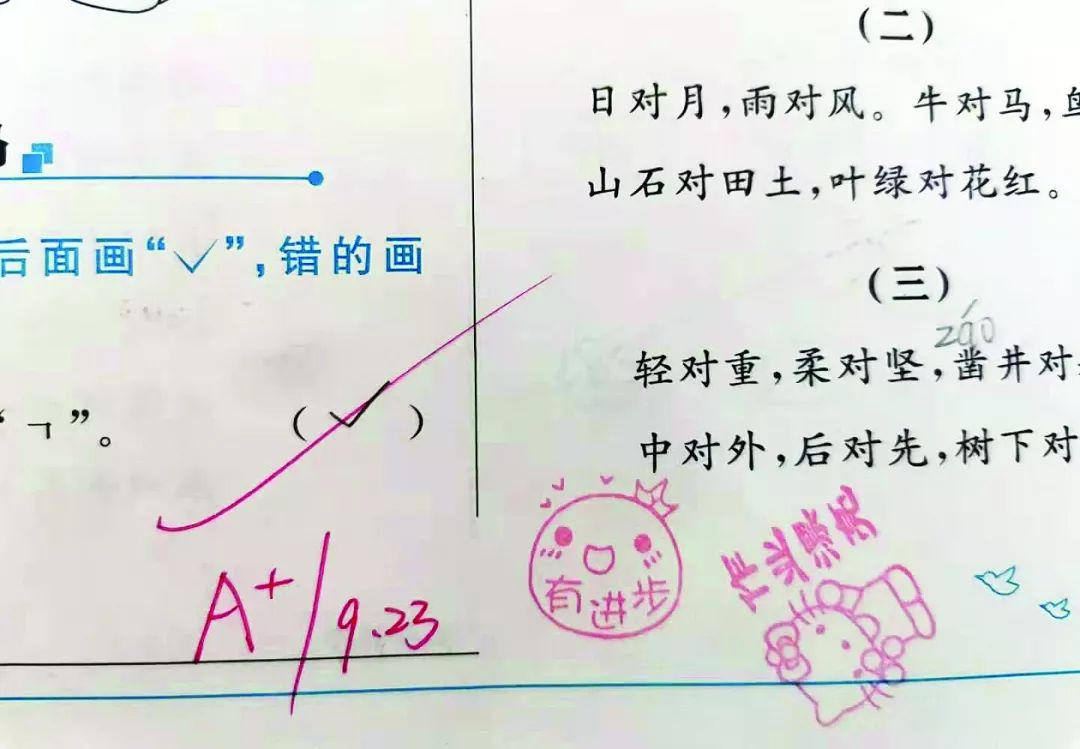 后面画“✓”,错的画
“ㄱ”。 (✓)
A+/9.23
(二)
日对月,雨对风。牛对马,
山石对田土,叶绿对花红。
(三)
záo
轻对重,柔对坚,凿井对
中对外,后对先,树下对
有进步
作业